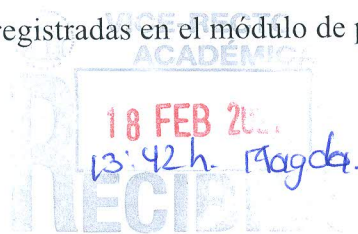 registradas en el módulo de
VICE-RECTO
ACADÉMIC
18 FEB
13:42 h. Magda.
RECIBI